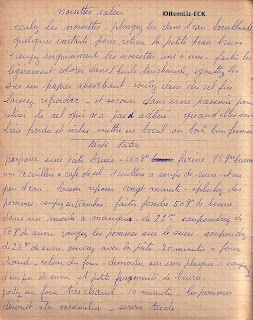 ©Hemilie-ECK
noisettes salées
coulez les noisettes. plongez les dans l'eau bouillante
quelques instants pour retirer la petite peau brune
rangez soigneusement les noisettes une à une. faites les
légèrement colorer dans l'huile très chaude, égouttez les
sur un papier absorbant. roulez dans du sel fin
laissez refroidir et secouez dans une passoire pour
retirer le sel qui n'a pas adhéré quand elles sont
très froides et sèches mettre en bocal ou boite bien fermée
tarte tatin
préparer une pâte brisée - 150gr farine 75gr beurre
un ½ cuillère à café de sel. 1 cuillère à soupe de sucre. et un
peu d'eau laisser reposer vingt minutes - épluchez des
pommes. faites fondre 50gr de beurre
dans un moule à manqué de 22cm saupoudrez de
50gr de sucre rangez les pommes sur le sucre - saupoudrez
de 25gr de sucre couvrez avec la pâte 20 minutes à four
chaud, retirez du four démoulez sur une plaque. saupoudrez
d'un peu de sucre et petits fragments de beurre
portez au four très chaud 10 minutes. les pommes
doivent être caramélisées - servir tiède